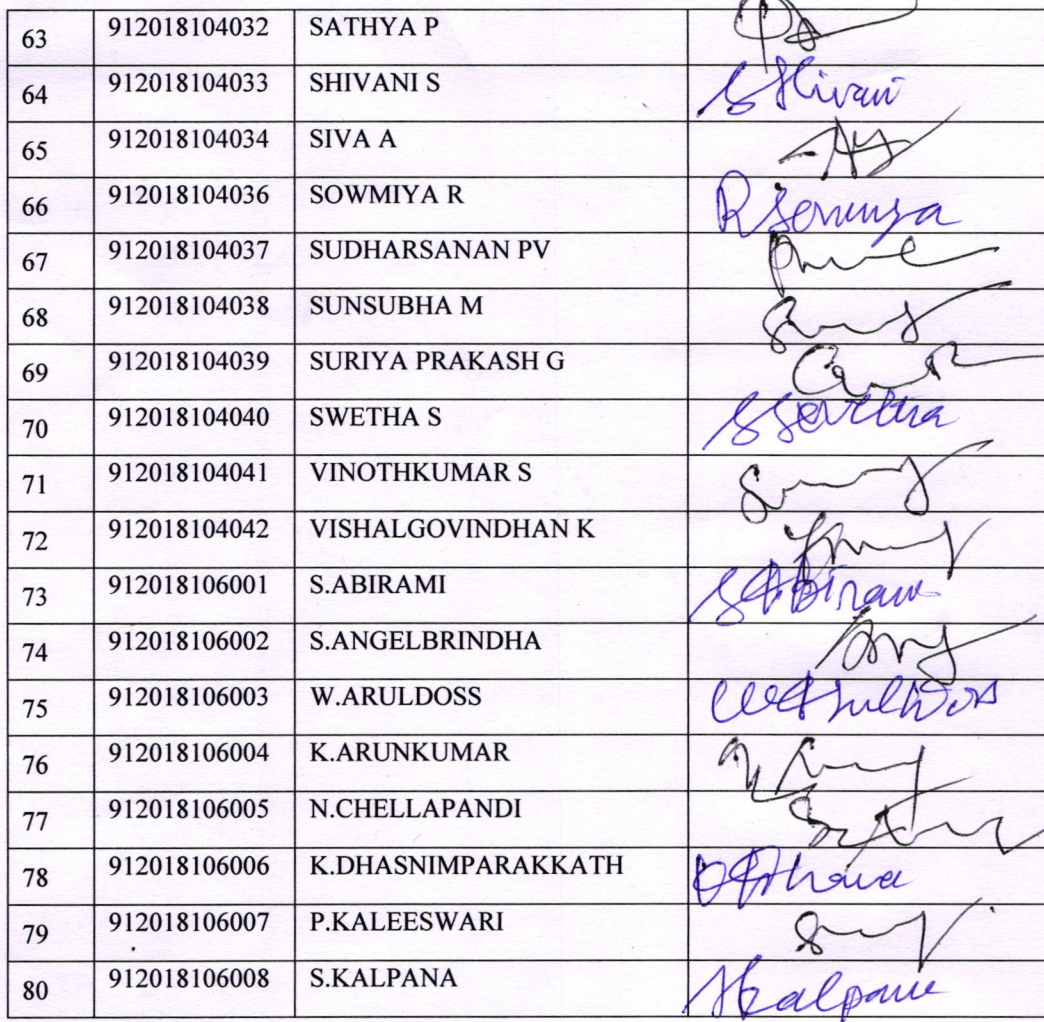 63 912018104032 SATHYA P
64 912018104033 SHIVANI S S Shivani
65 912018104034 SIVA A
66 912018104036 SOWMIYA R R Sowmiya
67 912018104037 SUDHARSANAN PV
68 912018104038 SUNSUBHA M
69 912018104039 SURIYA PRAKASH G
70 912018104040 SWETHA S S Swetha
71 912018104041 VINOTHKUMAR S
72 912018104042 VISHALGOVINDHAN K
73 912018106001 S.ABIRAMI S Abirami
74 912018106002 S.ANGELBRINDHA
75 912018106003 W.ARULDOSS
76 912018106004 K.ARUNKUMAR
77 912018106005 N.CHELLAPANDI
78 912018106006 K.DHASNIMPARAKKATH
79 912018106007 P.KALEESWARI
80 912018106008 S.KALPANA Kalpana